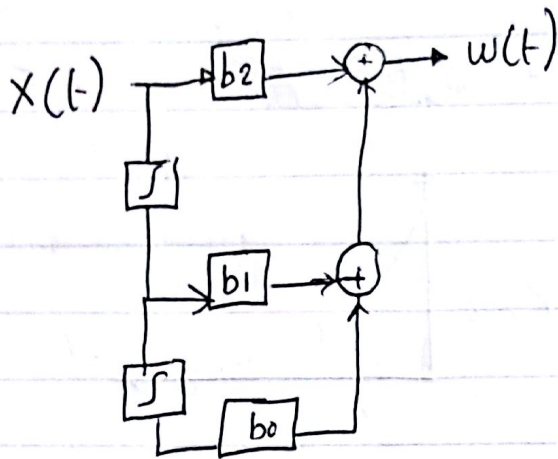 X(t) b2 + w(t)
∫
b1 +
∫
b0